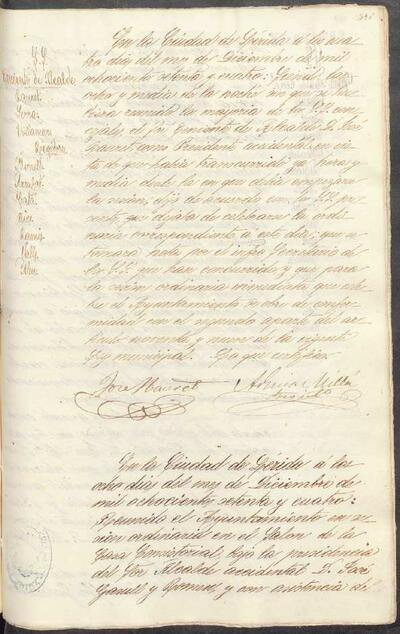 S. S.
Tenientes de Alcalde
Serra
Regidores
Bonell
En la Ciudad de Lérida á los cua-
tro dias del mes de Diciembre de mil
ochocientos setenta y cuatro: Siendo las
ocho y media de la noche sin que se hu-
biera reunido la mayoria de los SS. con-
cejales, el Sr. Teniente de Alcalde D. José
como Presidente accidental en vis-
ta de que habia transcurrido ya hora y
media desde la en que debia empezarse
la sesion, dijo de acuerdo con los SS. pre-
sentes, que dejaba de celebrarse la ordi-
naria correspondiente á este dia; que se
tomara nota por el infro. Secretario de
los SS. que han concurrido y que para
la sesion ordinaria inmediata que cele-
bre el Ayuntamiento se obre de confor-
midad con el segundo aparte del ar-
tículo noventa y nueve de la vigente
Ley municipal. De que certifico.
José
En la Ciudad de Lérida á los
ocho dias del mes de Diciembre de
mil ochocientos setenta y cuatro:
Reunido el Ayuntamiento en se-
sion ordinaria en el Salon de la
Casa Consistorial, bajo la presidencia
del Sor. Alcalde accidental D. José
y con asistencia de